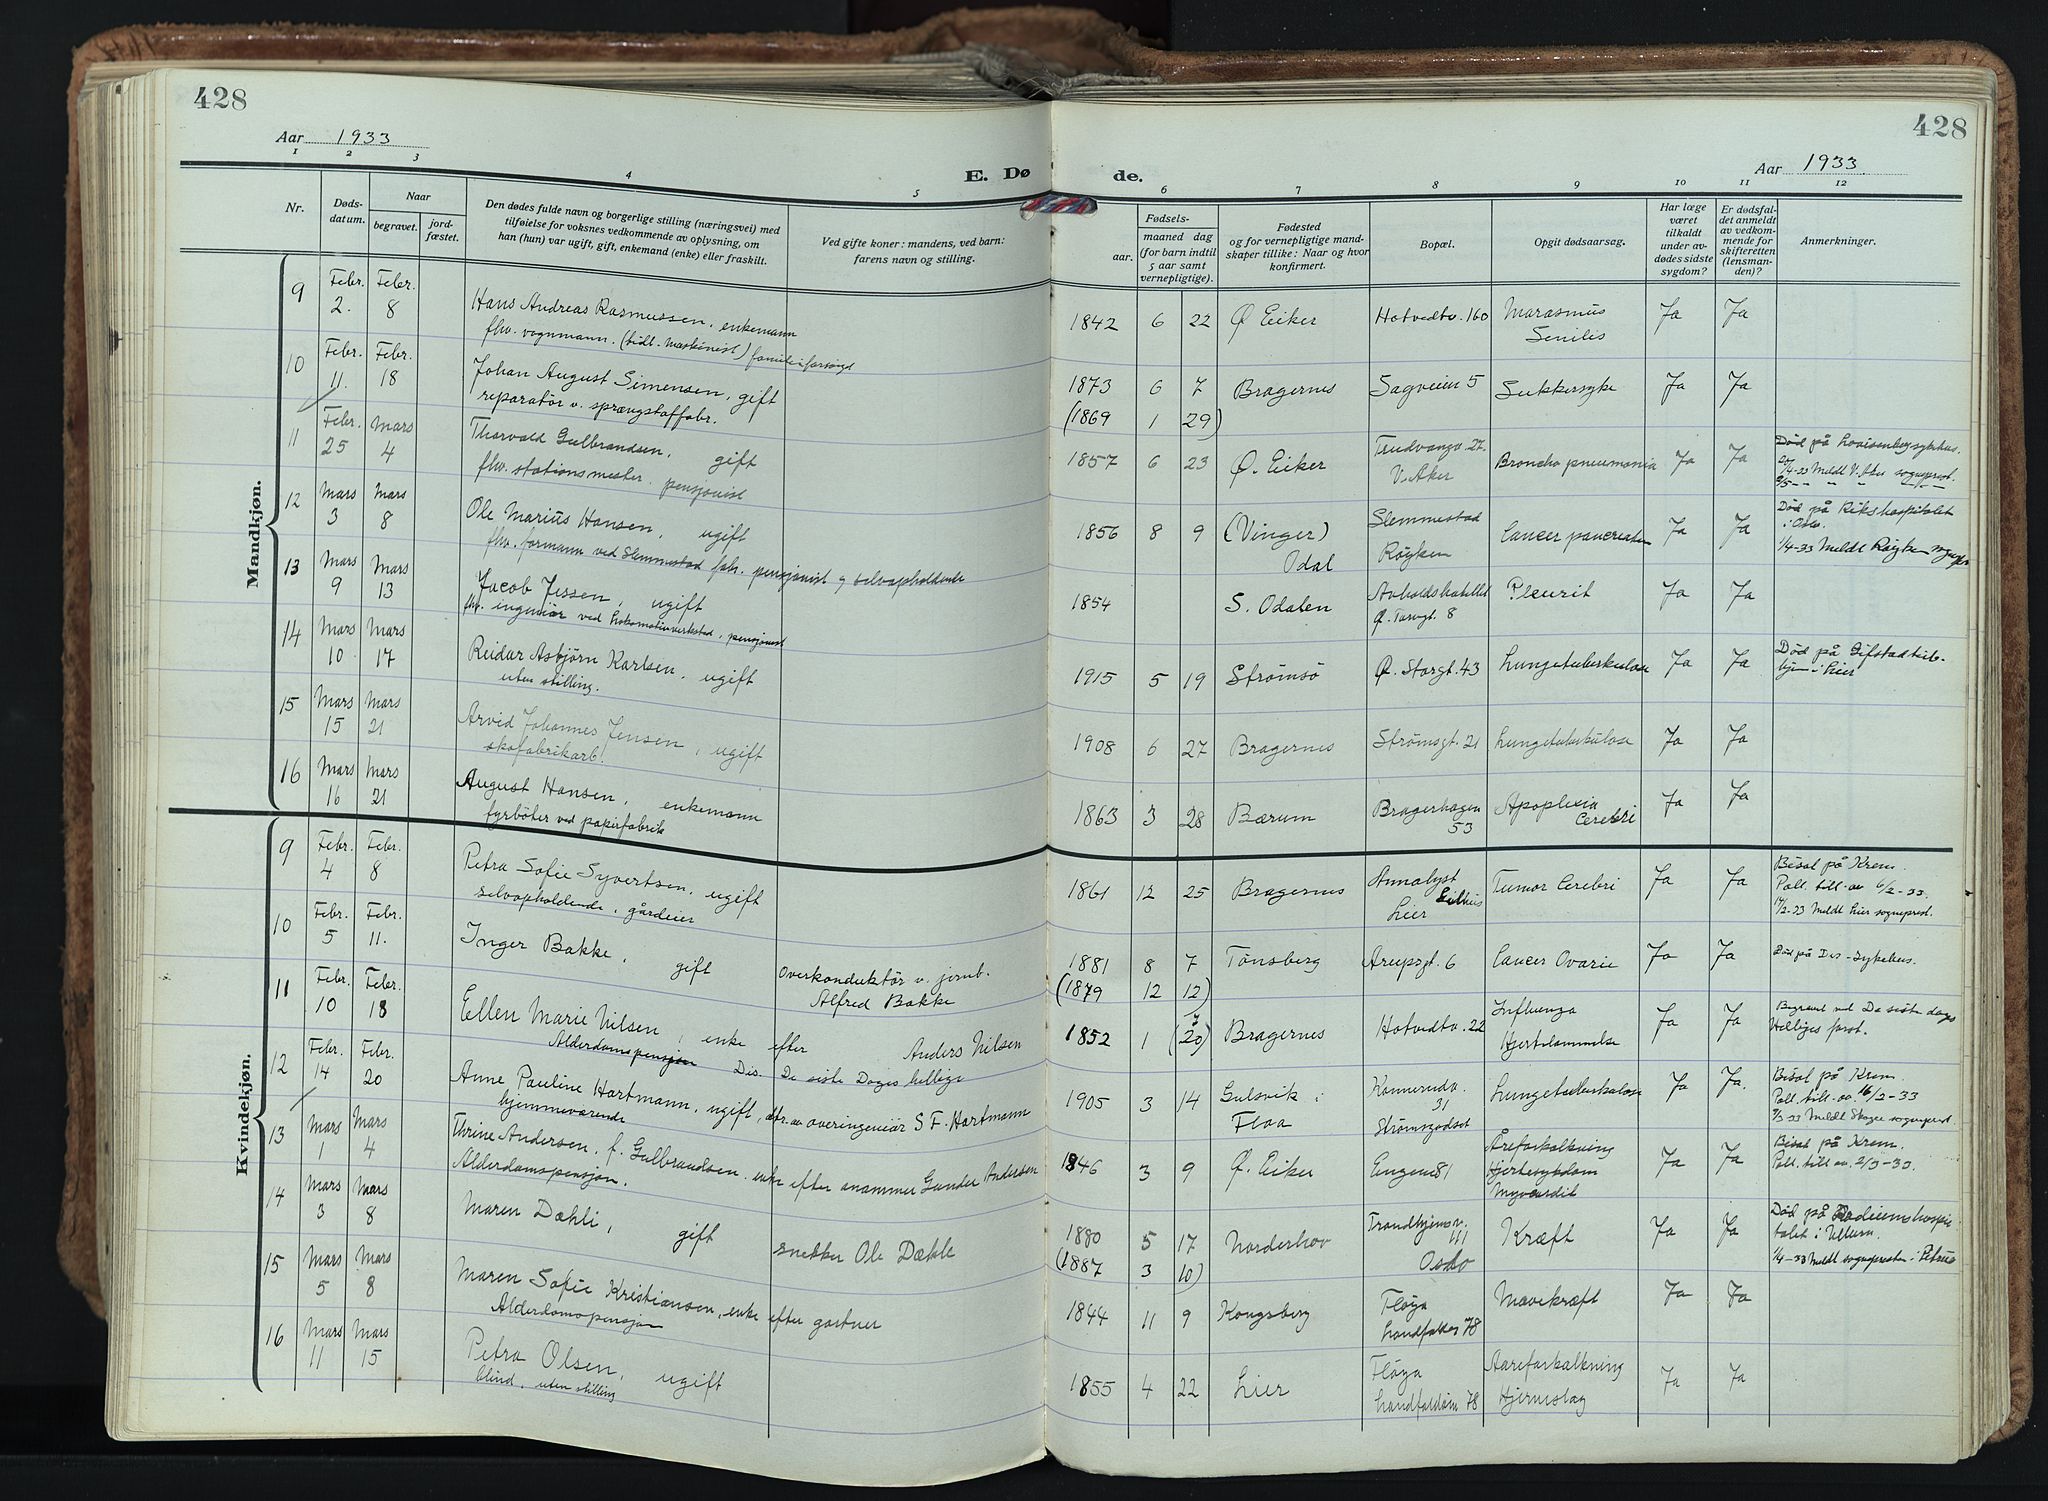 428
428
Aar 1933
Aar 1933
E. Dø de.
1 2 3 4 5 6 7 8 9 10 11 12
Nr.
Døds-
datum.
Naar
begravet.
jord-
fæstet.
Den dødes fulde navn og borgerlige stilling (næringsvei) med
tilføielse for voksnes vedkommende av oplysning, om
han (hun) var ugift, gift, enkemand (enke) eller fraskilt.
Ved gifte koner: mandens, ved barn:
farens navn og stilling.
Fødsels-
aar.
maaned dag
(for barn indtil
5 aar samt
vernepligtige).
Fødested
og for vernepligtige mand-
skaper tillike: Naar og hvor
konfirmert.
Bopæl.
Opgit dødsaarsag.
Har læge
været
tilkaldt
under av-
dødes sidste
sygdom?
Er dødsfal-
det anmeldt
av vedkom-
mende for
skifteretten
(lensman-
den)?
Anmerkninger.
Mandkjøn.
9 Febr. 2. Febr. 8 Hans Andreas Rasmussen, enkemann
fhv. vognmann. (tidl. maskinist) familieforsørget
1842 6 22 Ø Eiker Hotvedtv. 160 Marasmus Ja Ja
Senilis
10 Febr. 11. Febr. 18 Johan August Simensen, gift
reparatør v. sprængstoffabr.
1873 6 7 Bragernes Sagveien 5 Sukkersyke Ja Ja
(1869 1 29)
11 Febr. 25 Mars 4 Thorvald Gulbrandsen, gift
fhv. stationsmester. pensjonist
1857 6 23 Ø. Eiker Trudvangv. 27. Bronchopneumonia Ja Ja Død på Lovisenbergsykehus.
V. Aker
Meldt V. Aker sogneprest.
12 Mars 3 Mars 8 Ole Marius Hansen, ugift
fhv. formann ved Slemmestad fabr. pensjonist og selvopholdende
1856 8 9 (Vinger) Slemmestad Cancer pancreaten Ja Ja Død på Rikshospitalet
Odal Røyken i Oslo.
1/4-33 Meldt Røyken sognepr
13 Mars 9 Mars 13 Jacob Jessen, ugift
fhv. ingeniør ved Lokomotivverksted, pensjonist
1854 S. Odalen Avholdshotellet Pleurit Ja Ja
Ø. Torvgt. 8
14 Mars 10 Mars 17 Reidar Asbjørn Karlsen, ugift
uten stilling.
1915 5 19 Strømsø Ø. Storgt. 43 Lungetuberkulose Ja Ja Død på Gifstad tub-
hjem i Lier
15 Mars 15 Mars 21 Arvid Johannes Jensen, ugift
skofabrikarb.
1908 6 27 Bragernes Strømsgt. 21 Lungetuberkulose Ja Ja
16 Mars 16 Mars 21 August Hansen, enkemann
fyrbøter ved papirfabrik
1863 3 28 Bærum Bragerhagen Apoplexia Ja Ja
53 Cerebri
Kvindekjøn.
9 Febr. 4 Febr. 8 Petra Sofie Syvertsen, ugift
selvopholdende, gårdeier
1861 12 25 Bragernes Annalyst Tumor Cerebri Ja Ja Bisat på Krem.
Gulhus Poll. till. av 6/2-33.
Lier 17/2-33 Meldt Lier sogneprest.
10 Febr. 5 Febr. 11. Inger Bakke, gift Overkonduktør v. jernb.
Alfred Bakke
1881 8 7 Tønsberg Arupsgt. 6 Cancer Ovarie Ja Ja Død på Dr.s-sykehus.
(1879 12 12)
11 Febr. 10 Febr. 18 Ellen Marie Nilsen, enke efter Anders Nilsen
Alderdomspensjon Dis. De siste Dages hellige
1852 1 (20) Bragernes Hotvedtv. 22 Influenza Ja Ja Begravet ved De siste dags
Hjertelammelse Helliges prest.
12 Febr. 14 Febr. 20 Anne Pauline Hartmann, ugift, dtr. av overingeniør S F. Hartmann
hjemmeværende
1905 3 14 Gulsvik i Konnerudv. Lungetuberkulose Ja Ja. Bisat på Krem.
31 Poll. till. av. 16/2-33
Flaa Strømsgodset Meldt Skoger sogneprest
13 Mars 1 Mars 4 Thrine Andersen, f. Gulbrandsen. enke efter snømmer Gunder Andersen
Alderdomspensjon.
1846 3 9 Ø. Eiker Engene 81 Åreforkalkning Ja Ja Bisat på Krem.
Hjertesykdom Poll. till av. 2/3-33.
Myocardit
14 Mars 3 Mars 8 Maren Dæhli, gift snekker Ole Dæhle
1880 5 17 Norderhov Trondhjemsv. Kræft Ja Ja Død på Radiumshospi
111 talet i Ullern.
(1887 3 10) Oslo 1/4-33 Meldt sognepresten i Petrus
15 Mars 5 Mars 8 Maren Sofie Kristiansen, enke efter gartner
Alderdomspensjon
1844 11 9 Kongsberg Fløya Mavekræft Ja Ja
Landfalløs 78
16 Mars 11 Mars 15 Petra Olsen, ugift
blind, uten stilling
1855 4 22 Lier Fløya Aareforkalkning Ja Ja
78 Hjerneslag